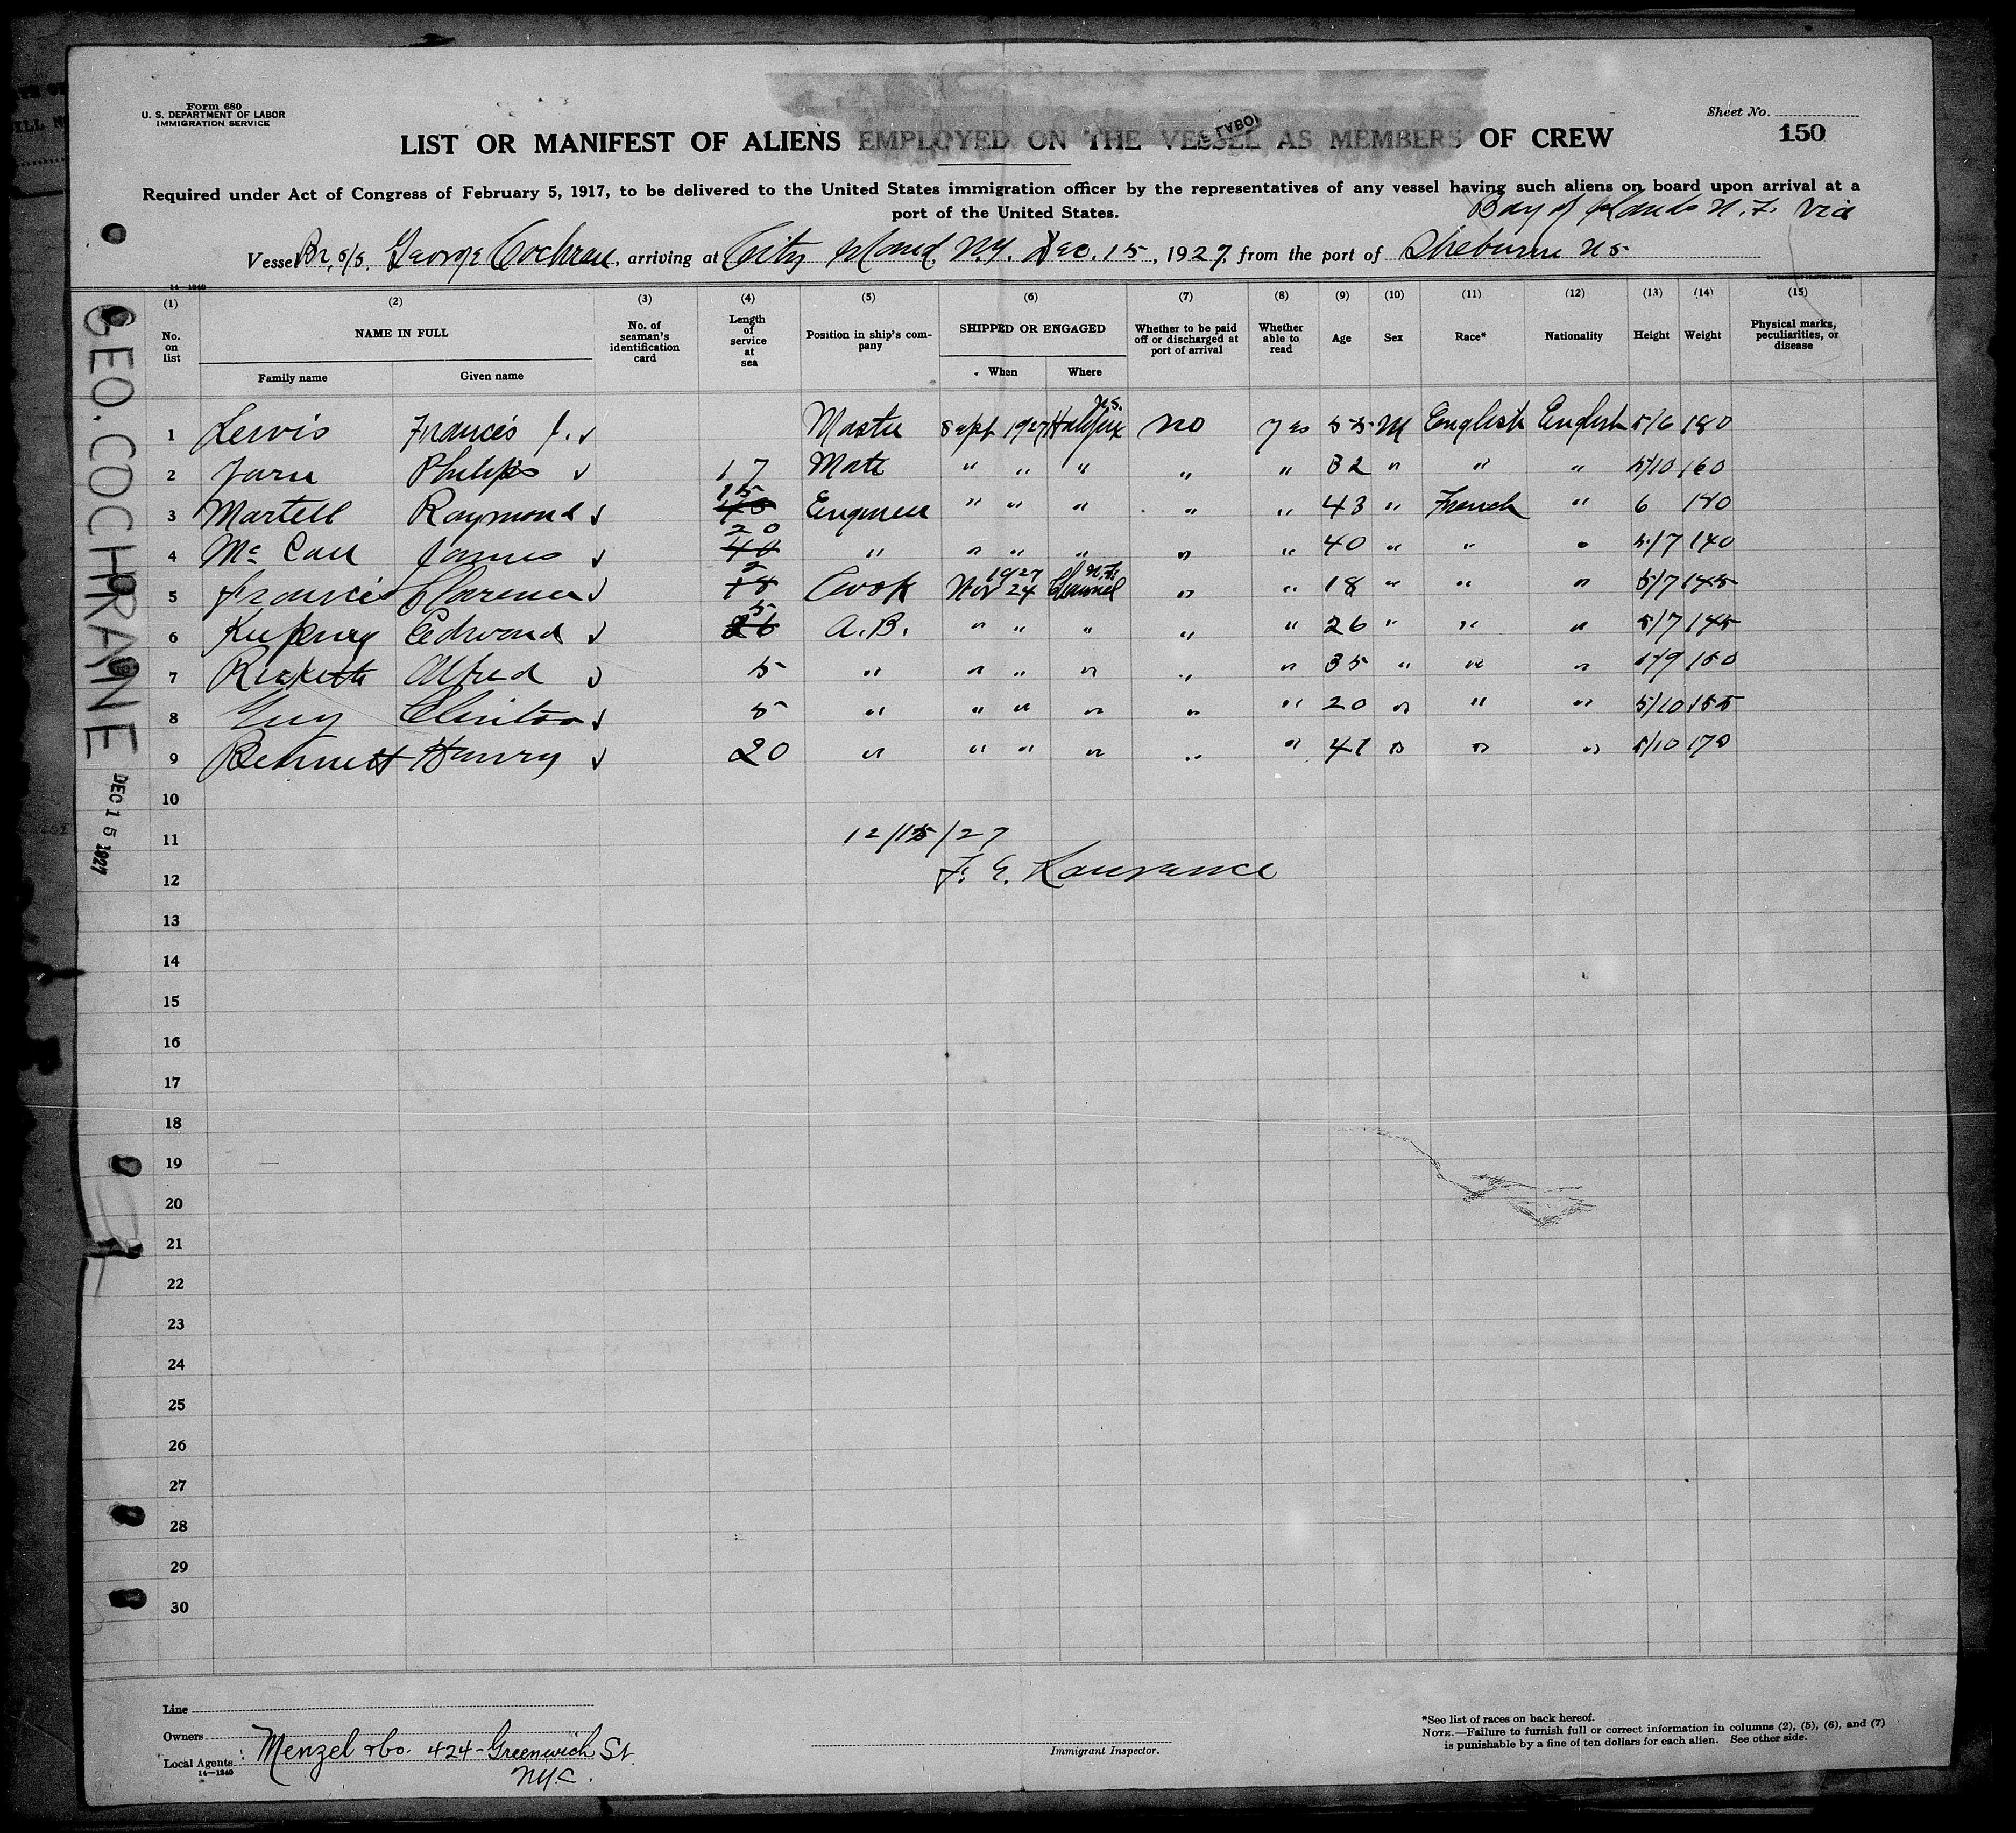 Form 680
U. S. DEPARTMENT OF LABOR
IMMIGRATION SERVICE
Sheet No.
150
LIST OR MANIFEST OF ALIENS EMPLOYED ON THE VESSEL AS MEMBERS OF CREW
Required under Act of Congress of February 5, 1917, to be delivered to the United States immigration officer by the representatives of any vessel having such aliens on board upon arrival at a
port of the United States.
Bay of Islands N.F. via
Vessel Br. s/s. George Cochran, arriving at City Island N.Y. Dec. 15, 1927, from the port of Sheburne NS
14—1240
(1) (2) (3) (4) (5) (6) (7) (8) (9) (10) (11) (12) (13) (14) (15)
No. on list NAME IN FULL No. of seaman's identification card Length of service at sea Position in ship's company SHIPPED OR ENGAGED Whether to be paid off or discharged at port of arrival Whether able to read Age Sex Race* Nationality Height Weight Physical marks, peculiarities, or disease
Family name Given name When Where
1 Lewis Francis J. √ Master Sept 1927 Halifax N.S. no yes 55 M English English 5/6 180
2 Philips √ 17 Mate " " " " " 32 " " " 5/10 160
3 Martell Raymond √ 15 Engineer " " " " " 43 " French " 6 180
4 Mc Carr James √ 20 40 " " " " " " 40 " " " 5/7 140
5 Francis Clarence √ 2 18 Cook Nov 24 1927 Channel N.F. " " 18 " " " 5/7 145
6 Edward √ 5 26 A.B. " " " " " 26 " " " 5/7 145
7 Ricketts Alfred √ 5 " " " " " " 35 " " " 5/9 150
8 Guy Clinton √ 5 " " " " " " 20 " " " 5/10 155
9 Bennett Harry √ 20 " " " " " " 41 " " " 5/10 170
10
11
12
13
14
15
16
17
18
19
20
21
22
23
24
25
26
27
28
29
30
12/15/27
F. E. Lawrance
GEO. COCHRANE
DEC 15 1927
Line
Owners
Local Agents: Menzel & Co. 424 - Greenwich St.
14—1240
NYC.
Immigrant Inspector.
*See list of races on back hereof.
NOTE.—Failure to furnish full or correct information in columns (2), (5), (6), and (7)
is punishable by a fine of ten dollars for each alien. See other side.